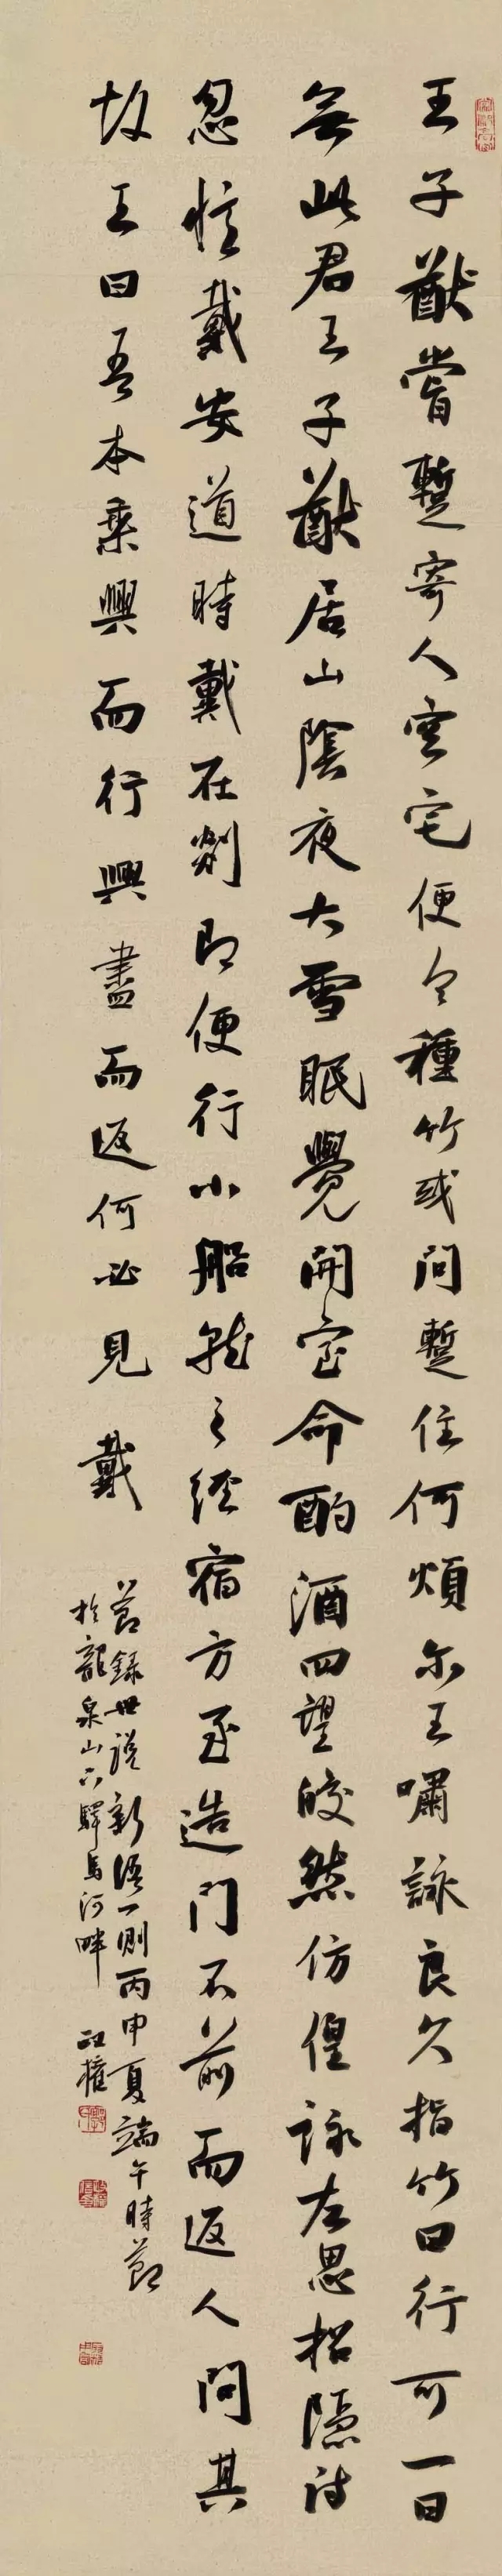 王子猷嘗暫寄人空宅便令種竹或問暫住何煩尔王嘯詠良久指竹曰行可一日
無此君王子猷居山陰夜大雪眠覺開室命酌酒四望皎然仿偟詠左思招隱詩
忽憶戴安道時戴在剡即便行小船就之經宿方至造門不前而返人問其
故王曰吾本乘興而行興盡而返何必見戴
節錄世說新語一則丙申夏端午時節
於龍泉山下驛馬河畔